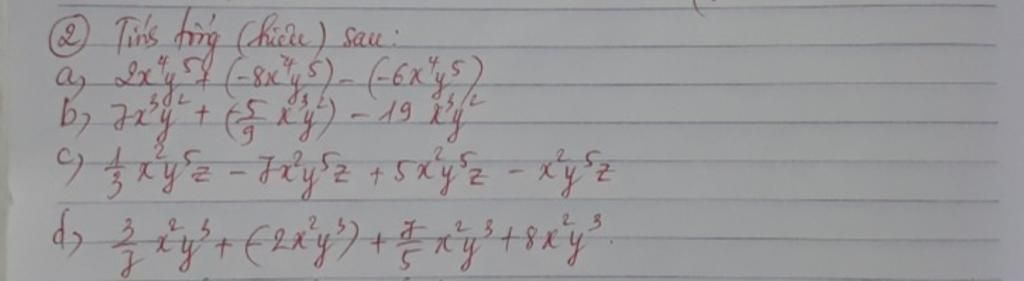 ② Tính tổng (hiệu) sau:
a, 2x⁴y⁵ + (-8x⁴y⁵) - (-6x⁴y⁵)
b, 7x³y² + (-5/9 x³y²) - 19 x³y²
c) 1/3 x²y⁵z - 7x²y⁵z + 5x²y⁵z - x²y⁵z
d, 3/7 x²y³ + (-2x²y³) + 7/5 x²y³ + 8x²y³.